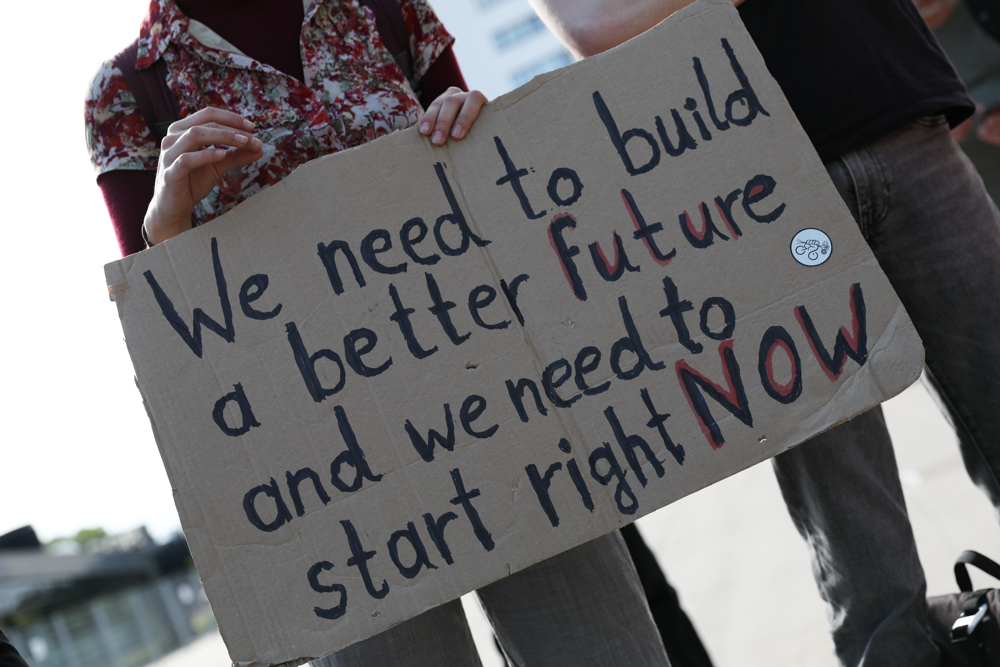 We need to build
a better future
and we need to
start right NOW